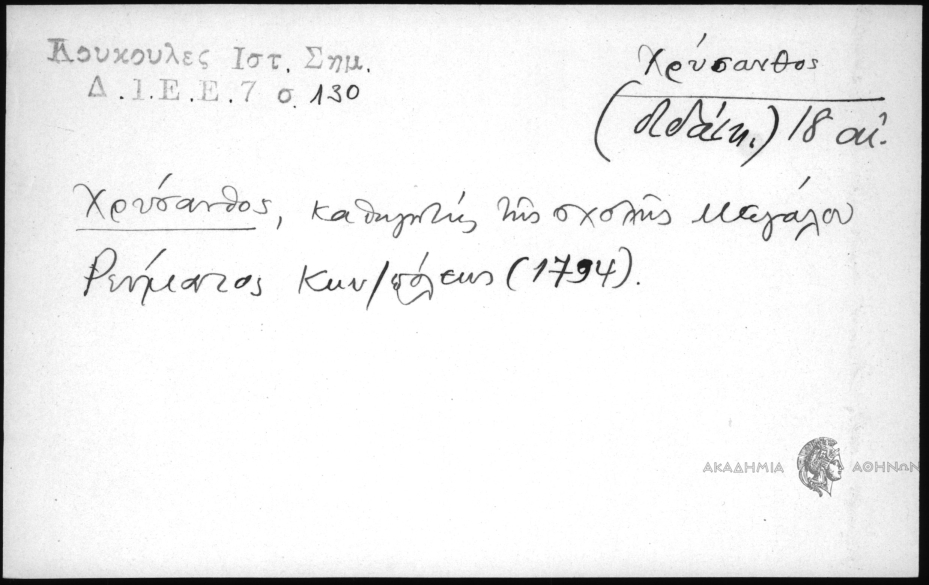 Κουκουλες Ιστ. Σημ.
Δ.Ι.Ε.Ε.7 σ. 130
Χρύσανθος
(διδάσκ.) 18 αἰ.
Χρύσανθος, καθηγητής τῆς σχολῆς Μεγάλου
Ρεύματος Κων/πόλεως (1794).
ΑΚΑΔΗΜΙΑ ΑΘΗΝΩΝ